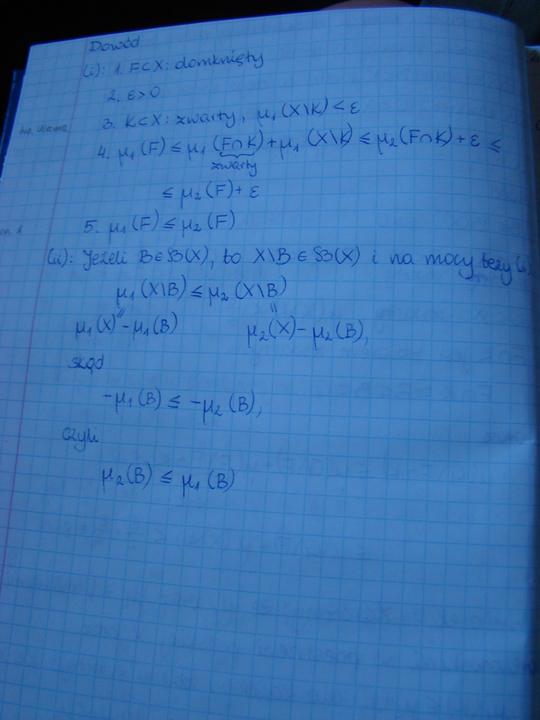 Dowód
(i): 1. F⊂X: domknięty
2. ε>0
3. K⊂X: zwarty, μ₁(X\K)<ε
4. μ₁(F) ≤ μ₁(F∩K)+μ₁(X\K) ≤ μ₂(F∩K)+ε ≤
zwarty
≤ μ₂(F)+ε
5. μ₁(F) ≤ μ₂(F)
(ii): Jeżeli B∈𝔅(X), to X\B ∈ 𝔅(X) i na mocy tezy (i)
μ₁(X\B) ≤ μ₂(X\B)
μ₁(X)-μ₁(B) μ₂(X)-μ₂(B),
skąd
-μ₁(B) ≤ -μ₂(B),
czyli
μ₂(B) ≤ μ₁(B)